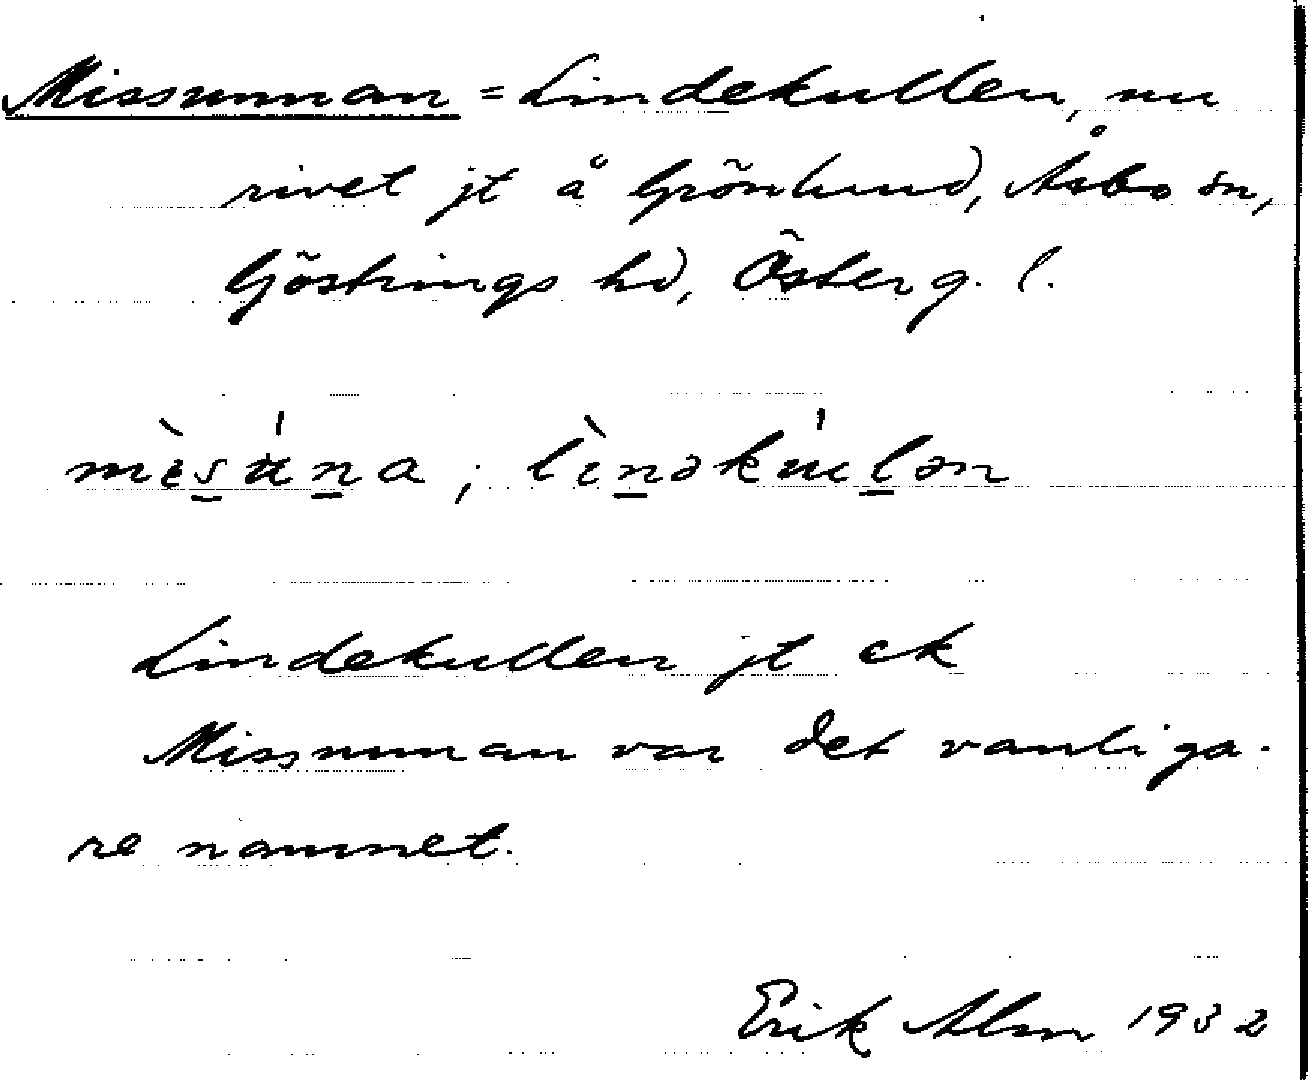 Missunnan = Lindekullen, nu
rivet jt å Grönlund, Åsbo sn,
Göstrings hd, Österg. l.
mìsu̍na; lìnəku̍lən
Lindekullen jt ek
Missunnan var det vanliga-
re namnet.
Erik Alm 1932